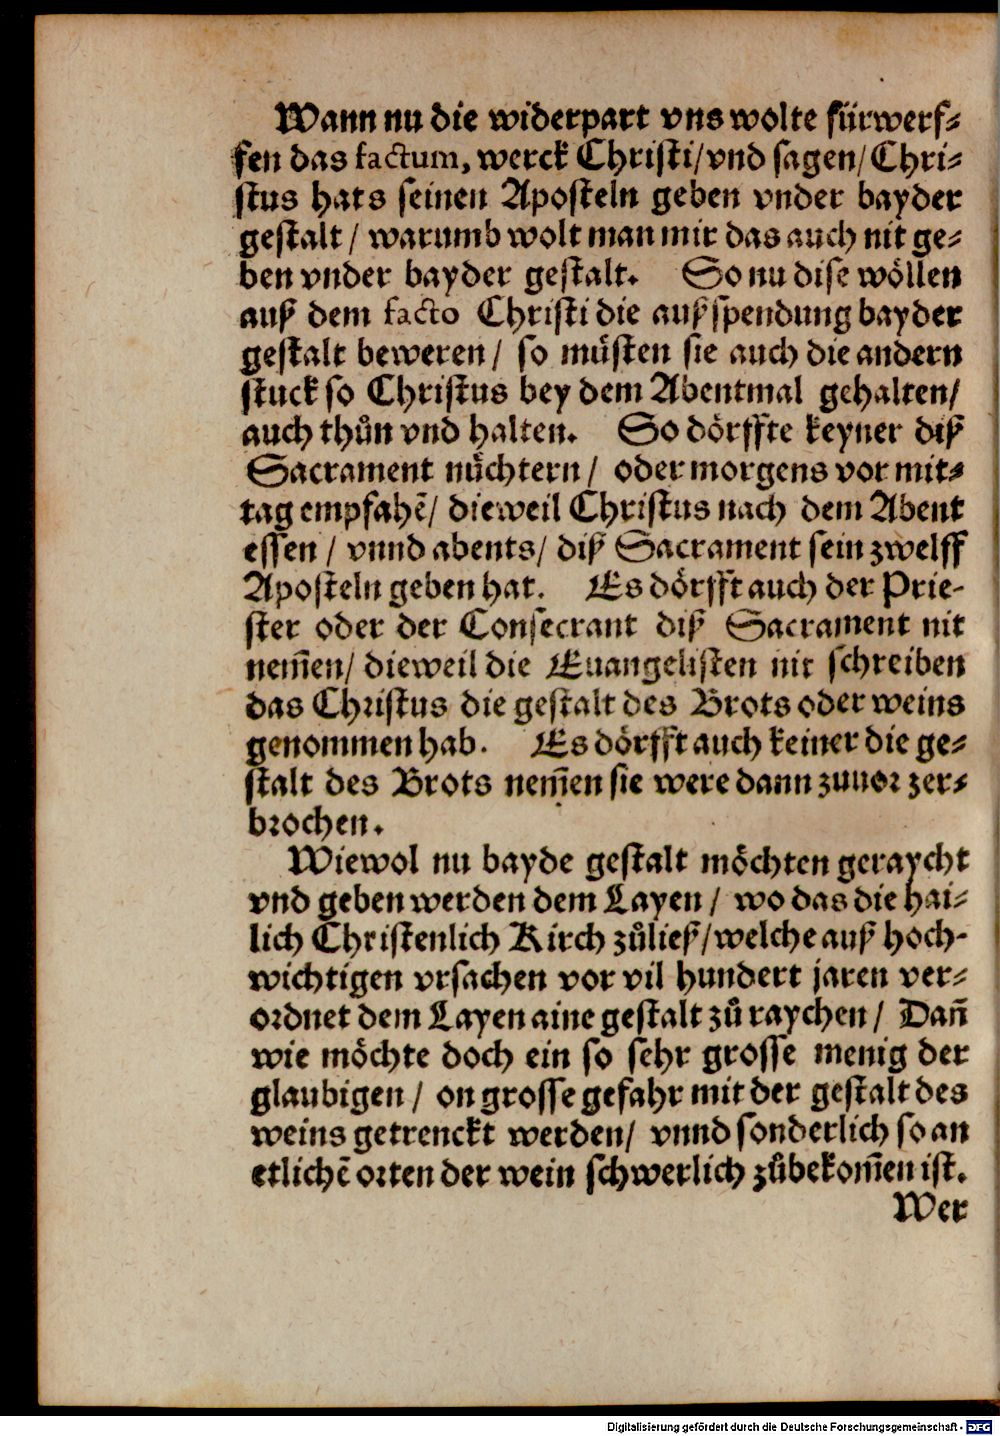 Wann nu die widerpart vns wolte fürwerf⸗
fen das factum, werck Christi/ vnd sagen/ Chri⸗
stus hats seinen Aposteln geben vnder bayder
gestalt/ warumb wolt man mir das auch nit ge⸗
ben vnder bayder gestalt. So nu dise wöllen
auß dem facto Christi die außspendung bayder
gestalt beweren/ so müsten sie auch die andern
stuck so Christus bey dem Abentmal gehalten/
auch thůn vnd halten. So dörffte keyner diß
Sacrament nüchtern/ oder morgens vor mit⸗
tag empfahẽ/ dieweil Christus nach dem Abent
essen/ vnnd abents/ diß Sacrament sein zwelff
Aposteln geben hat. Es dörfft auch der Prie-
ster oder der Consecrant diß Sacrament nit
nem̃en/ dieweil die Euangelisten nit schreiben
das Christus die gestalt des Brots oder weins
genommen hab. Es dörfft auch keiner die ge⸗
stalt des Brots nem̃en sie were dann zuuor zer⸗
brochen.
Wiewol nu bayde gestalt möchten geraycht
vnd geben werden dem Layen/ wo das die hai⸗
lich Christenlich Kirch zůließ/ welche auß hoch-
wichtigen vrsachen vor vil hundert jaren ver⸗
ordnet dem Layen aine gestalt zů raychen/ Dañ
wie möchte doch ein so sehr grosse menig der
glaubigen/ on grosse gefahr mit der gestalt des
weins getrenckt werden/ vnnd sonderlich so an
etlichẽ orten der wein schwerlich zůbekom̃en ist.
Wer
Digitalisierung gefördert durch die Deutsche Forschungsgemeinschaft - DFG